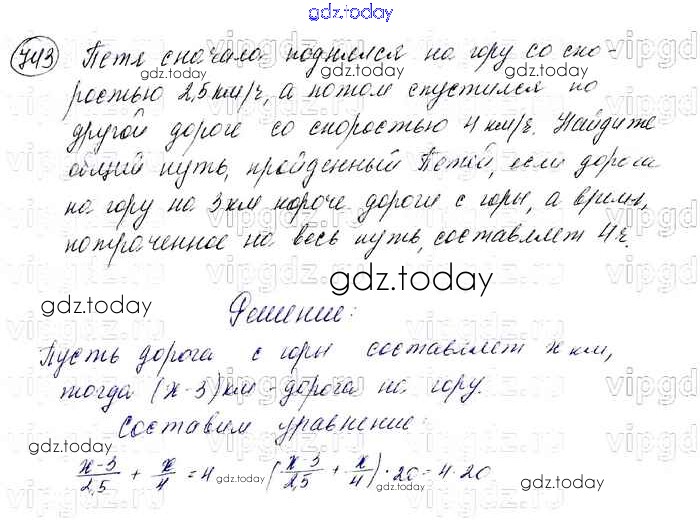 gdz.today
743 Петя сначала поднялся на гору со ско-
gdz.today gdz.today
ростью 2,5 км/ч, а потом спустился по
другой дороге со скоростью 4 км/ч. Найдите
общий путь, пройденный Петей, если дорога
на гору на 3 км короче дороги с горы, а время,
потраченное на весь путь, составляет 4 ч.
gdz.today
gdz.today
Решение:
Пусть дорога с горы составляет x км,
тогда (x-3) км - дорога на гору.
gdz.today gdz.today
Составим уравнение:
(x-3)/2,5 + x/4 = 4 gdz.today ((x-3)/2,5 + x/4) · 20 = 4 · 20
gdz.today